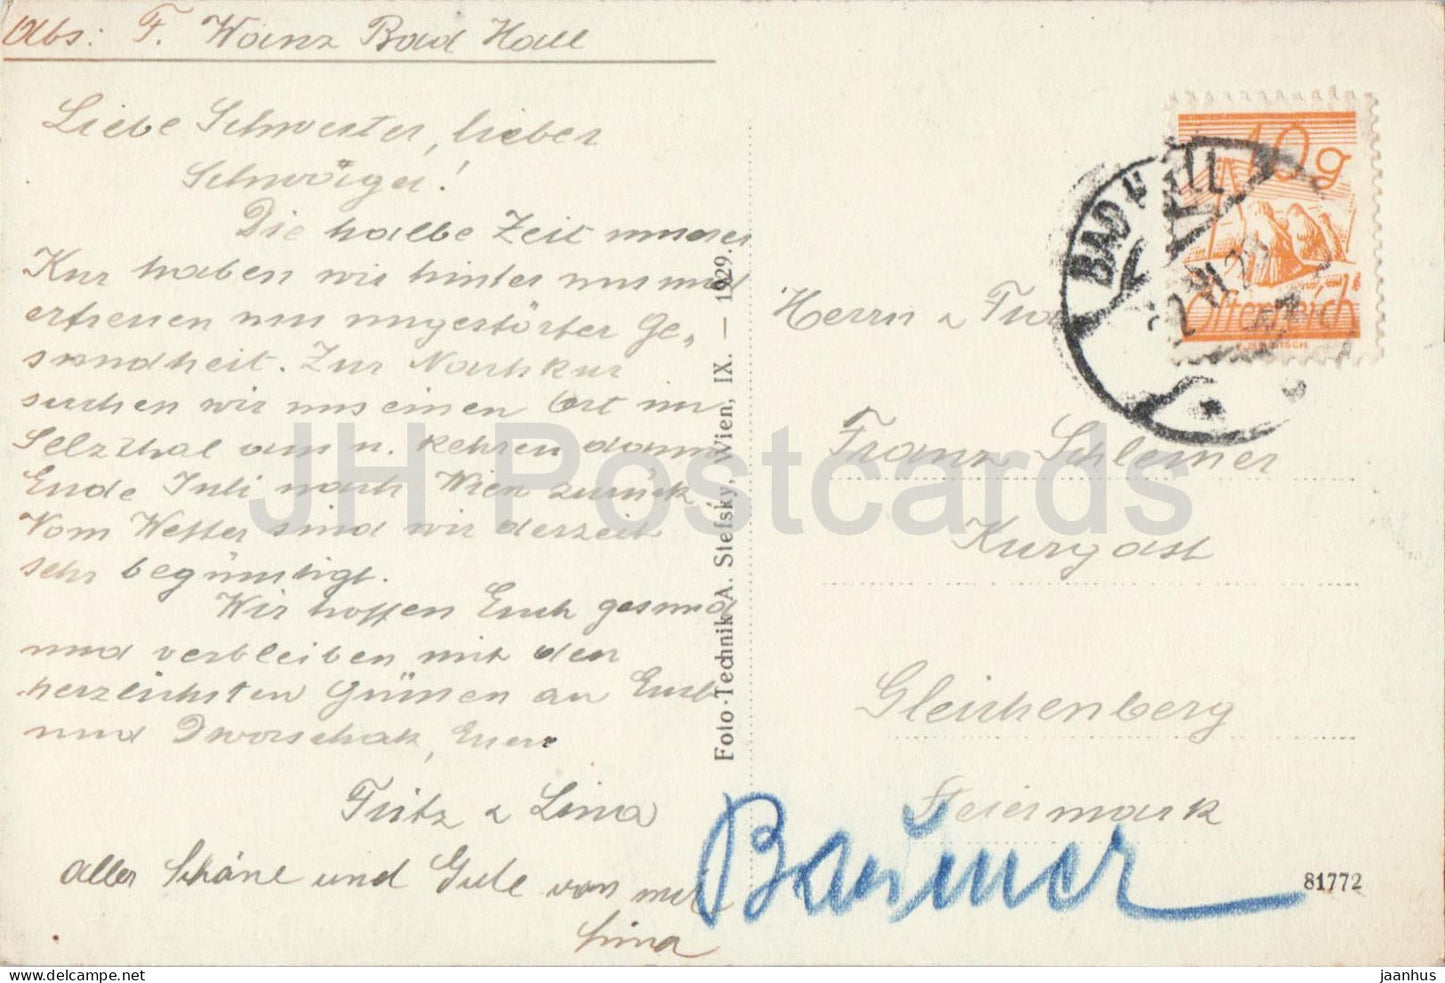 Abs: F. Wanz Bad Hall
Liebe Schwester, lieber
Schwäger!
Die halbe Zeit unserer
Kur haben wir hinter uns und
erfreuen uns ungestörter Ge„
sundheit. Zur Nachkur
suchen wir uns einen Ort im
Selzthal aus u. kehren dann
Ende Juli nach Wien zurück.
Vom Wetter sind wir derzeit
sehr begünstigt.
Wir hoffen Euch gesund
und verbleiben mit den
herzlichsten Grüssen an Euch
und Dworschak, Eure
Fritz & Lina
alles Schöne und Gute von mir
Lina
Foto-Technik A. Stefsky, Wien, IX. — 1929.
10g
Österreich
BAD HALL
Herrn &
Franz Schleimer
Kurgast
Gleichenberg
Steiermark
81772
JH Postcards
jaanhus on hip.com